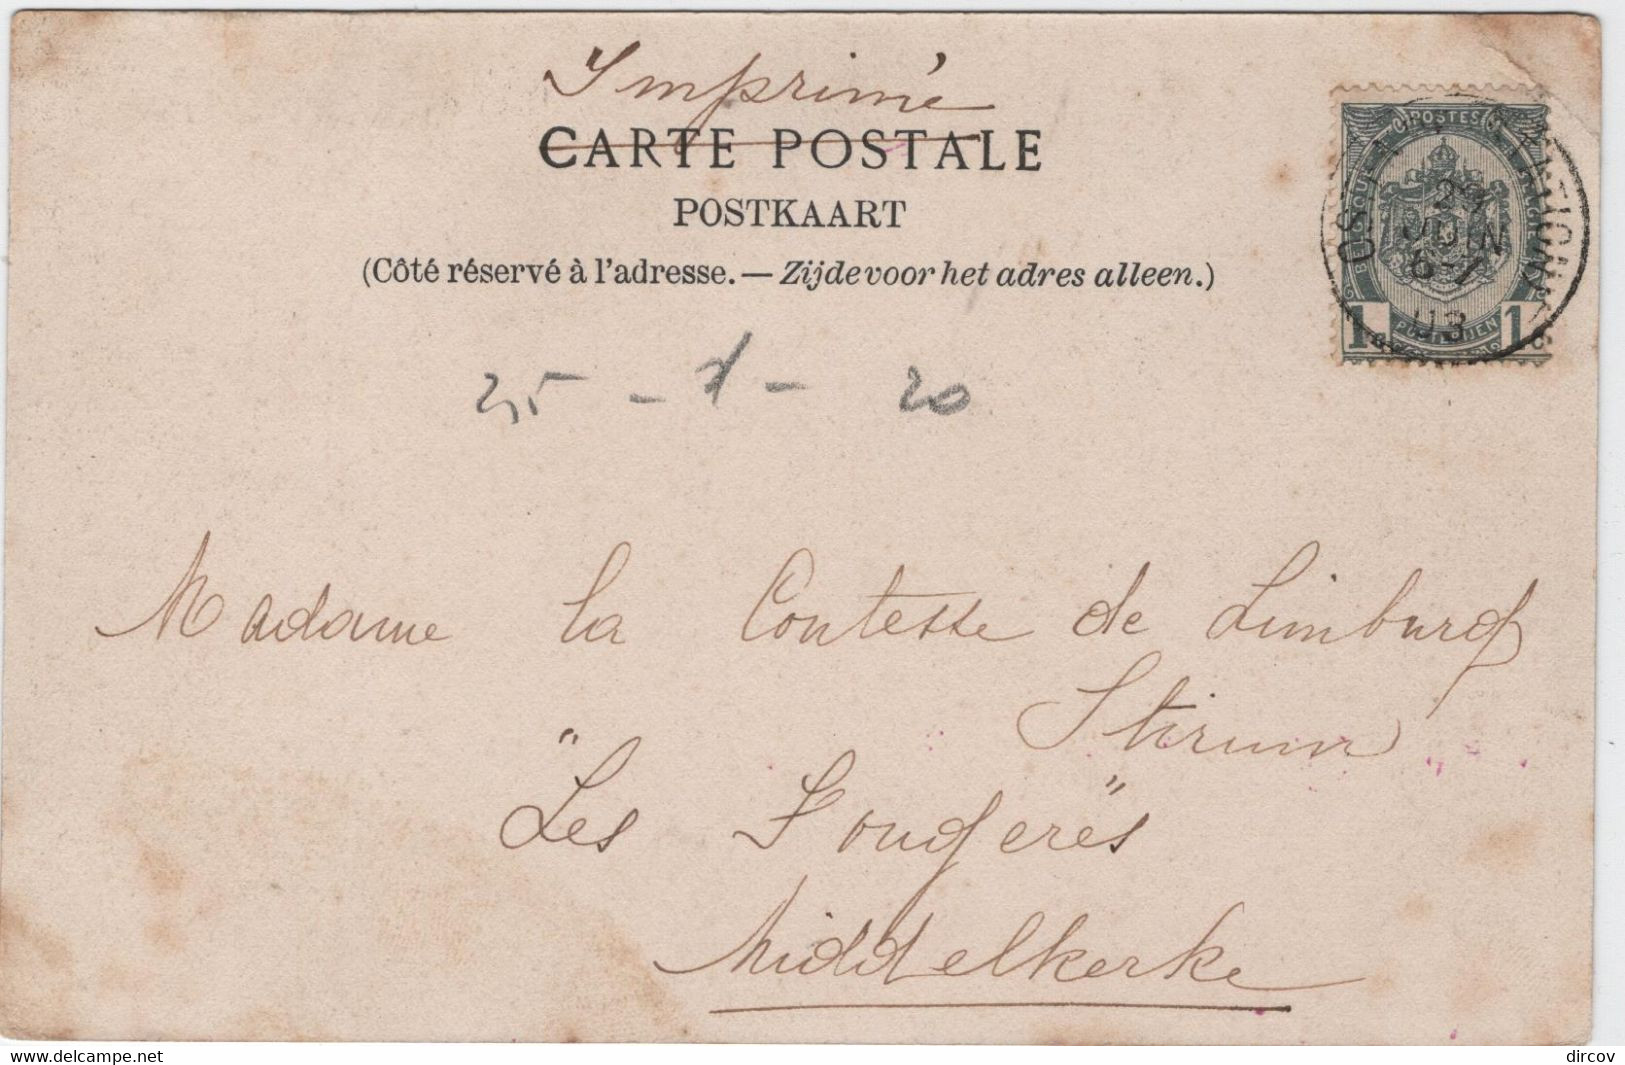 Imprimé
CARTE POSTALE
POSTKAART
(Côté réservé à l'adresse. — Zijde voor het adres alleen.)
POSTES
1 1
29
JUIN
6-7
03
- 1 - 20
Madame la Contesse de Limburg
Stirum
"Les Fougères"
Middelkerke
www.delcampe.net
dircov